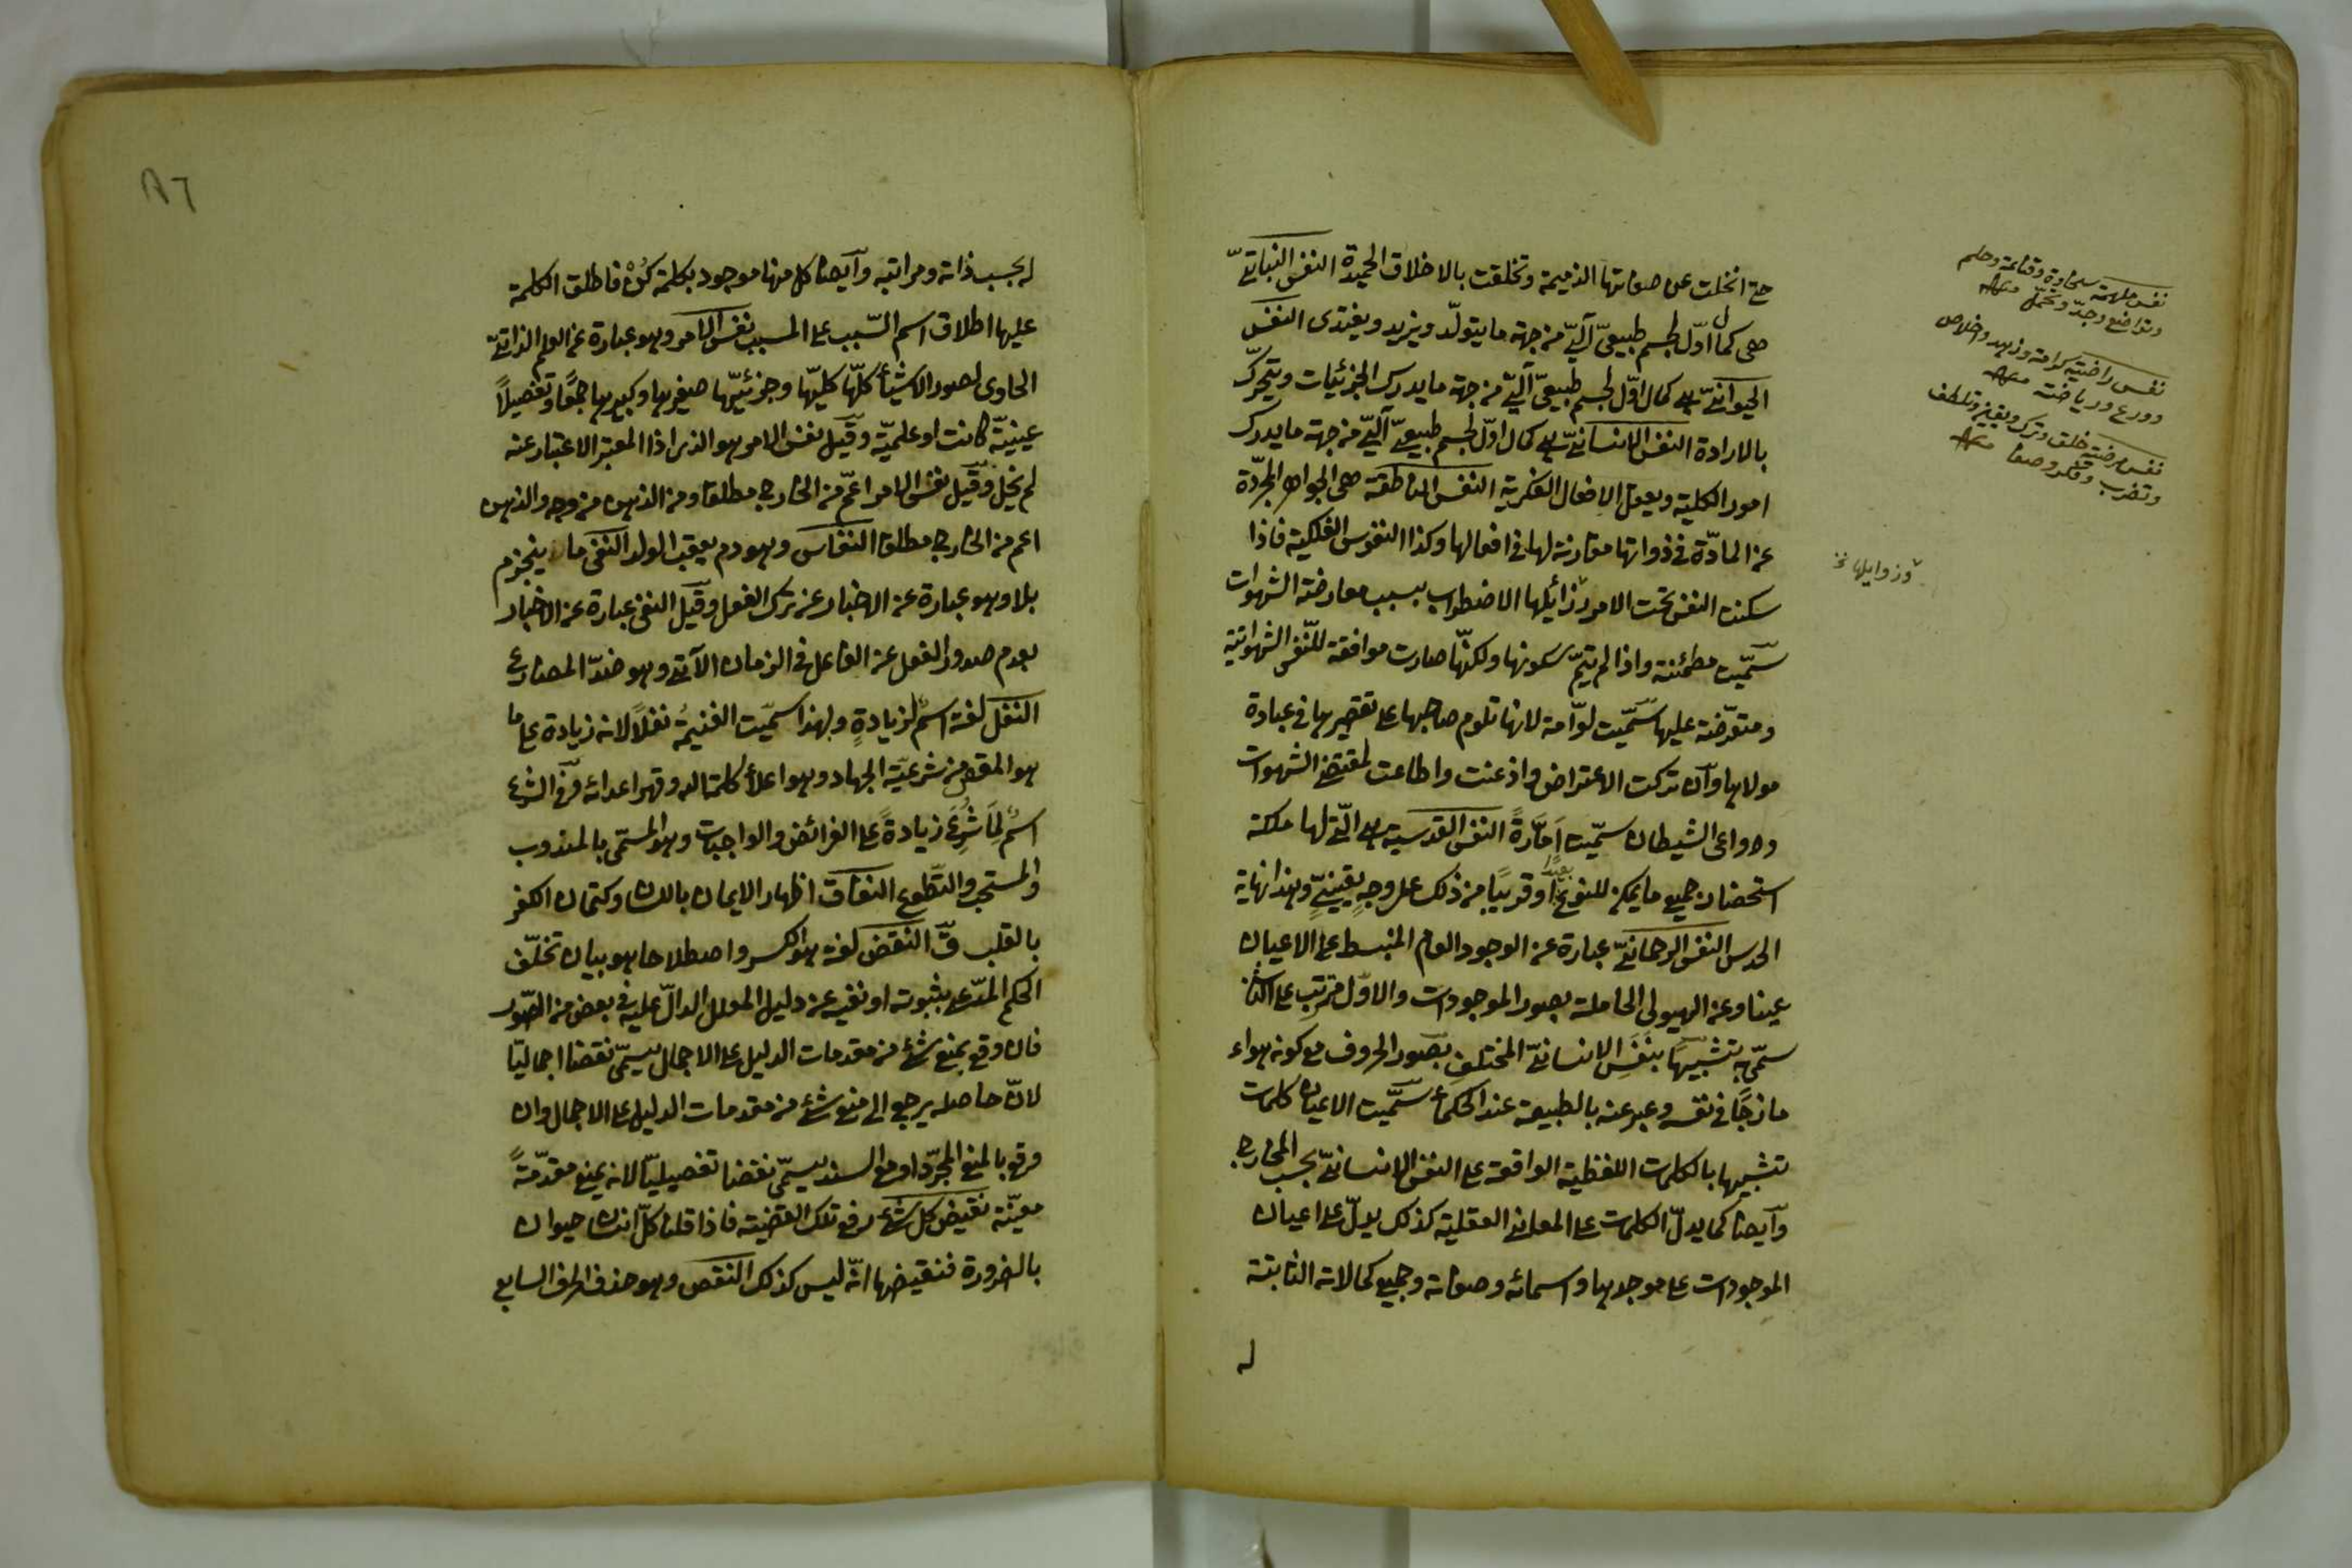 حتى انخلت عن صفاتها الذميمة وتخلقت بالاخلاق الحميدة النفس النباتيّ
هى كمال اوّل لجسم طبيعىّ آلىّ من جهة ما يتولّد ويزيد ويغتدى النفس
الحيوانىّ هى كمال اوّل لجسم طبيعىّ آلىّ من جهة ما يدرك الجزئيات ويتحرّك
بالارادة النفس الانسانىّ هى كمال اوّل لجسم طبيعىّ آلىّ من جهة ما يدرك
امور الكلية ويعقل الافعال الفكرية النفس الناطقة هى الجواهر المجرّدة
عن المادّة فى ذواتها مقارنة لها فى افعالها وكذا النفوس الفلكية فاذا
سكنت النفس تحت الامر وزائيلها الاضطراب بسبب معارضة الشهوات
سمّيت مطمئنة واذا لم يتمّ سكونها ولكنّها صارت موافقة للنّفس الشهوانية
ومتعرّضة عليها سمّيت لوّامة لانها تلوم صاحبها على تقصيرها فى عبادة
مولاها وان تركت الاعتراض واذعنت واطاعت لمقتضى الشهوات
ودواعى الشيطان سمّيت امّارةً النفس القدسية هى الّتى لها ملكة
استحضار جميع ما يمكن للنوع بعيدًا او قريبًا من ذلك على وجهٍ يقينىٍّ وهذا نهاية
الحدس النفس الرحمانىّ عبارة عن الوجود العام المنبسط على الاعيان
عينا وعن الهيولى الحاملة بصور الموجودات والاوّل مترتب على الثانى
سمّى به تشبيهًا بنَفَسِ الانسانىّ المختلفِ بصور الحروف مع كونه هواء
ساذجًا فى نفسه وعبر عنه بالطبيعة عند الحكمأ سمّيت الاعيان كلمات
تشبيها بالكلمات اللفظية الواقعة على النفس الانسانىّ بحسب المخارج
وآيضا كما يدلّ الكلمات على المعانى العقلية كذلك يدلّ على اعيان
الموجودات على موجدها واسمائه وصفاته وجميع كمالاته الثابتة
له
نفس ملهمة سخاوة وقناعة وحلم
وتواضع وجدّ وتحمّل منه
نفس راضية كرامة وزهد واخلاص
وورع ورياضة منه
نفس مرضية خلق وترك وتلطف
وتقرب وفكر وصفا منه
وزوايلها نخ
٨٦
له بحسب ذاته ومراتبه وآيضا كل منها موجود بكلمة كُنْ فاطلق الكلمة
عليها اطلاق اسم السّبب على المسبب نفس الامر وهو عبارة عن العلم الذاتىّ
الحاوى لصور الاشيأ كلّها كليّها وجزئيّها صغيرها وكبيرها جمعًا وتفصيلًا
عينيّة كانت او علميّة وقيل نفس الامر هو الذى اذا المعتبر الاعتبار عنه
لم يخل وقيل نفس الامر اعمّ من الخارج مطلقا ومن الذهن من وجه والذهن
اعم من الخارج مطلقا النفاس وهو دم يعقب الولد النفى ما ينجزم
بلا وهو عبارة عن الاخبار عن ترك الفعل وقيل النفى عبارة عن الاخبار
بعدم صدور الفعل عن الفاعل فى الزمان الآتى وهو ضدّ المضارع
النفل لغة اسمٌ لزيادةٍ ولهذا سمّيت الغنيمةُ نفلًا لانه زيادة على ما
هو المقص من شرعيّة الجهاد وهو اعلأ كلمة الله وقهر اعدائه وفى الشرع
اسمٌ لِمَا شُرِعَ زيادةً على الفرائض والواجبات وهو المسمّى بالمندوب
والمستحب والتطوع النفاق اظهار الايمان باللسان وكتمان الكفر
بالقلب قّ النقض لغة هو الكسر واصطلاحا هو بيان تخلّف
الحكم المدّعى بثبوته او نفيه عن دليل المعلل الدالّ عليه فى بعض من الصّور
فان وقع بمنع شئ من مقدمات الدليل على الاجمال يسمّى نقضا اجماليّا
لانّ حاصله يرجع الى منع شئ من مقدمات الدليل على الاجمال وان
وقع بالمنع المجرّد او مع السند يسمّى نقضا تفصيليّا لانه يمنع مقدّمةً
معيّنة نقيض كل شئ رفع تلك القضية فاذا قلنا كلّ انسان حيوان
بالضرورة فنقيضها انّه ليس كذلك النقص وهو حذف الحرف السابع